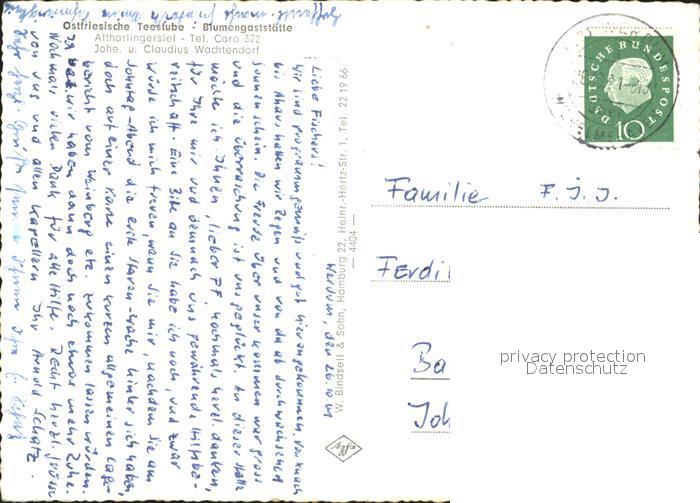 Ostfriesische Teestube · Blumengaststätte
Altharlingersiel - Tel. Caro 322
Johe. u. Claudius Wachtendorf
Werdum, den 26.10.61
Liebe Fischers!
Wir sind programmgemäß und gut hier angekommen. Von nach
bis Ahaus hatten wir Regen und von da ab durchwachsenen
Sonnenschein. Die Freude über unser Kommen war gross
und die Überraschung ist uns geglückt. An dieser Stelle
möchte ich Ihnen, lieber FF, nochmals herzl. danken,
für Ihre mir und demnach uns gewährende Hilfsbe-
reitschaft. Eine Bitte an Sie habe ich noch, und zwar
würde ich mich freuen, wenn Sie mir, nachdem Sie am
Sonntag-Abend die erste Staren-wache hinter sich haben,
doch auf einer Karte einen kurzen allgemeinen Lage-
bericht vom Weinberg etc. zukommen lassen würden.
wir haben dann doch noch etwas mehr Ruhe.
Nochmals vielen Dank für alle Hilfe. Recht herzl. Grüsse
von uns und allen Kapellern Ihr Arnold Schatz.
W. Bindseil & Sohn, Hamburg 22, Heinr.-Hertz-Str. 1, Tel. 22 19 66
— 4404 —
Agfa
DEUTSCHE BUNDESPOST
10
Familie F. J. J.
Ferdi
Ba
Joh
privacy protection
Datenschutz